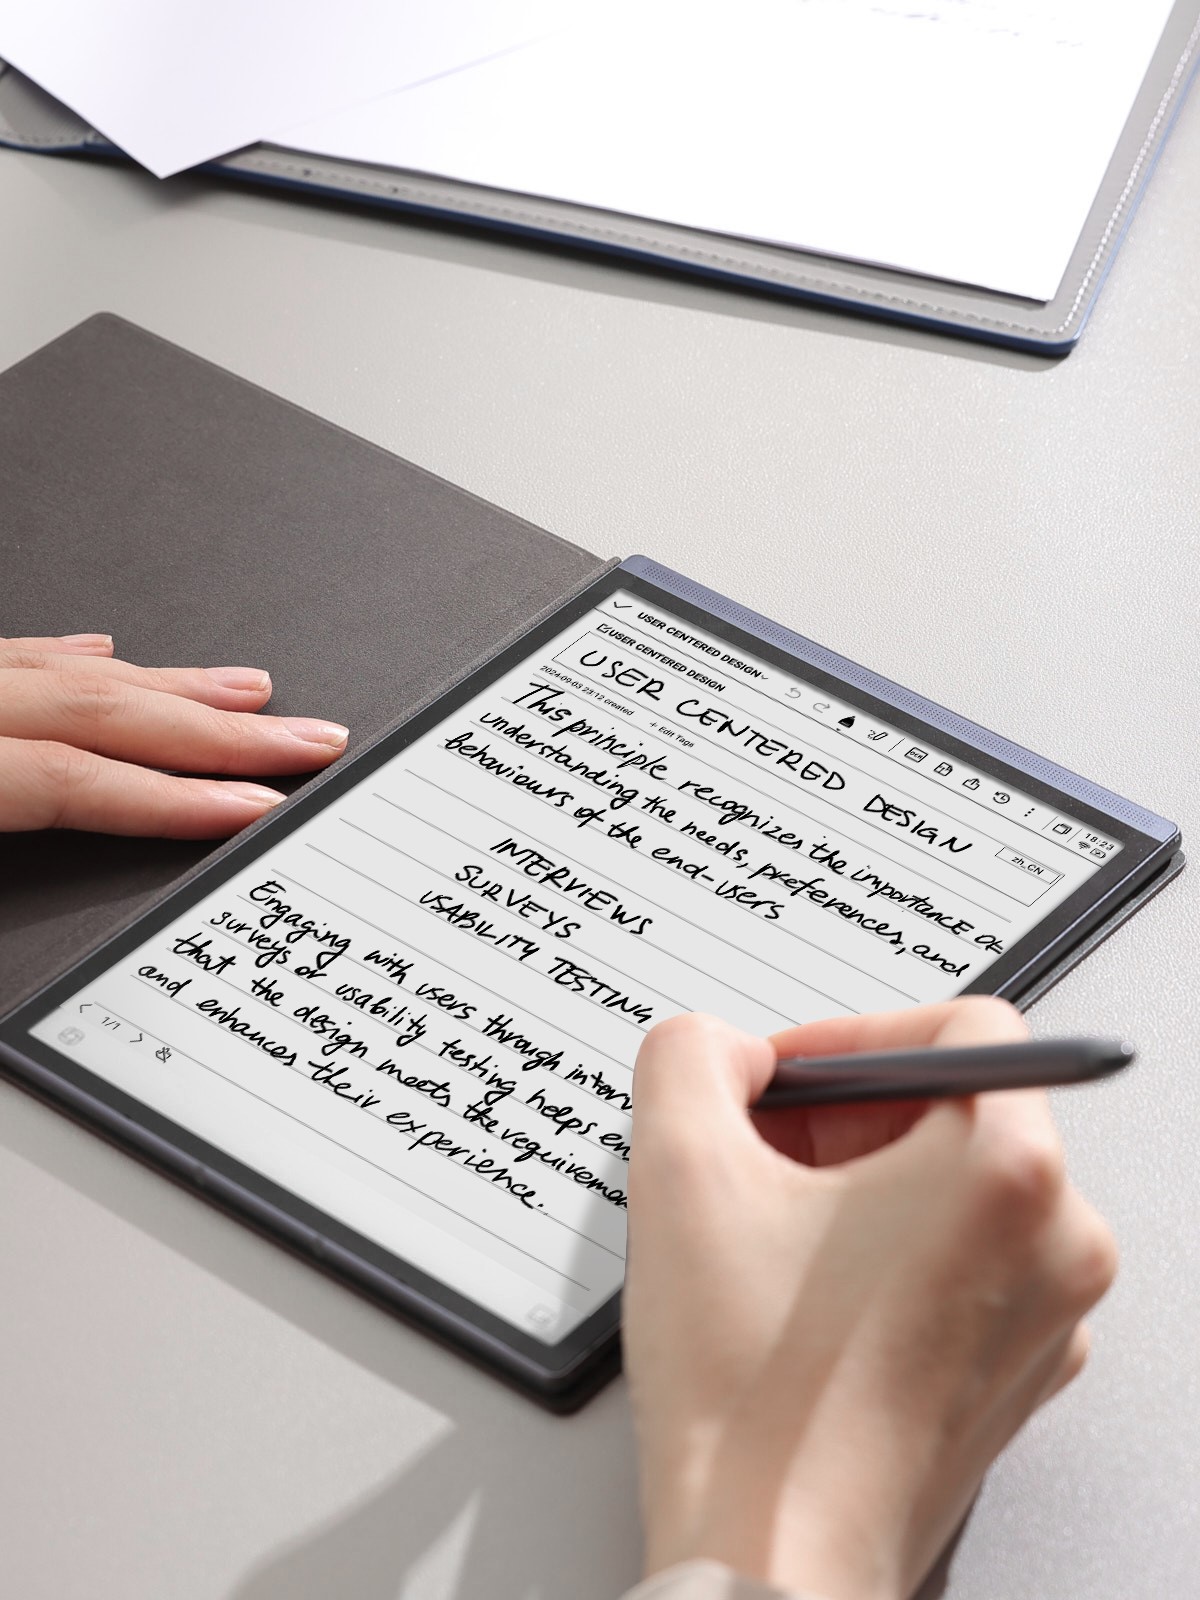 USER CENTERED DESIGN
18:23
USER CENTERED DESIGN
USER CENTERED DESIGN
zh_CN
2024-09-03 23:12 created + Edit Tags
This principle recognizes the importance of
understanding the needs, preferences, and
behaviours of the end-users
INTERVIEWS
SURVEYS
USABILITY TESTING
Engaging with users through interv
surveys or usability testing helps en
that the design meets the requiremen
and enhances their experience.
1/1